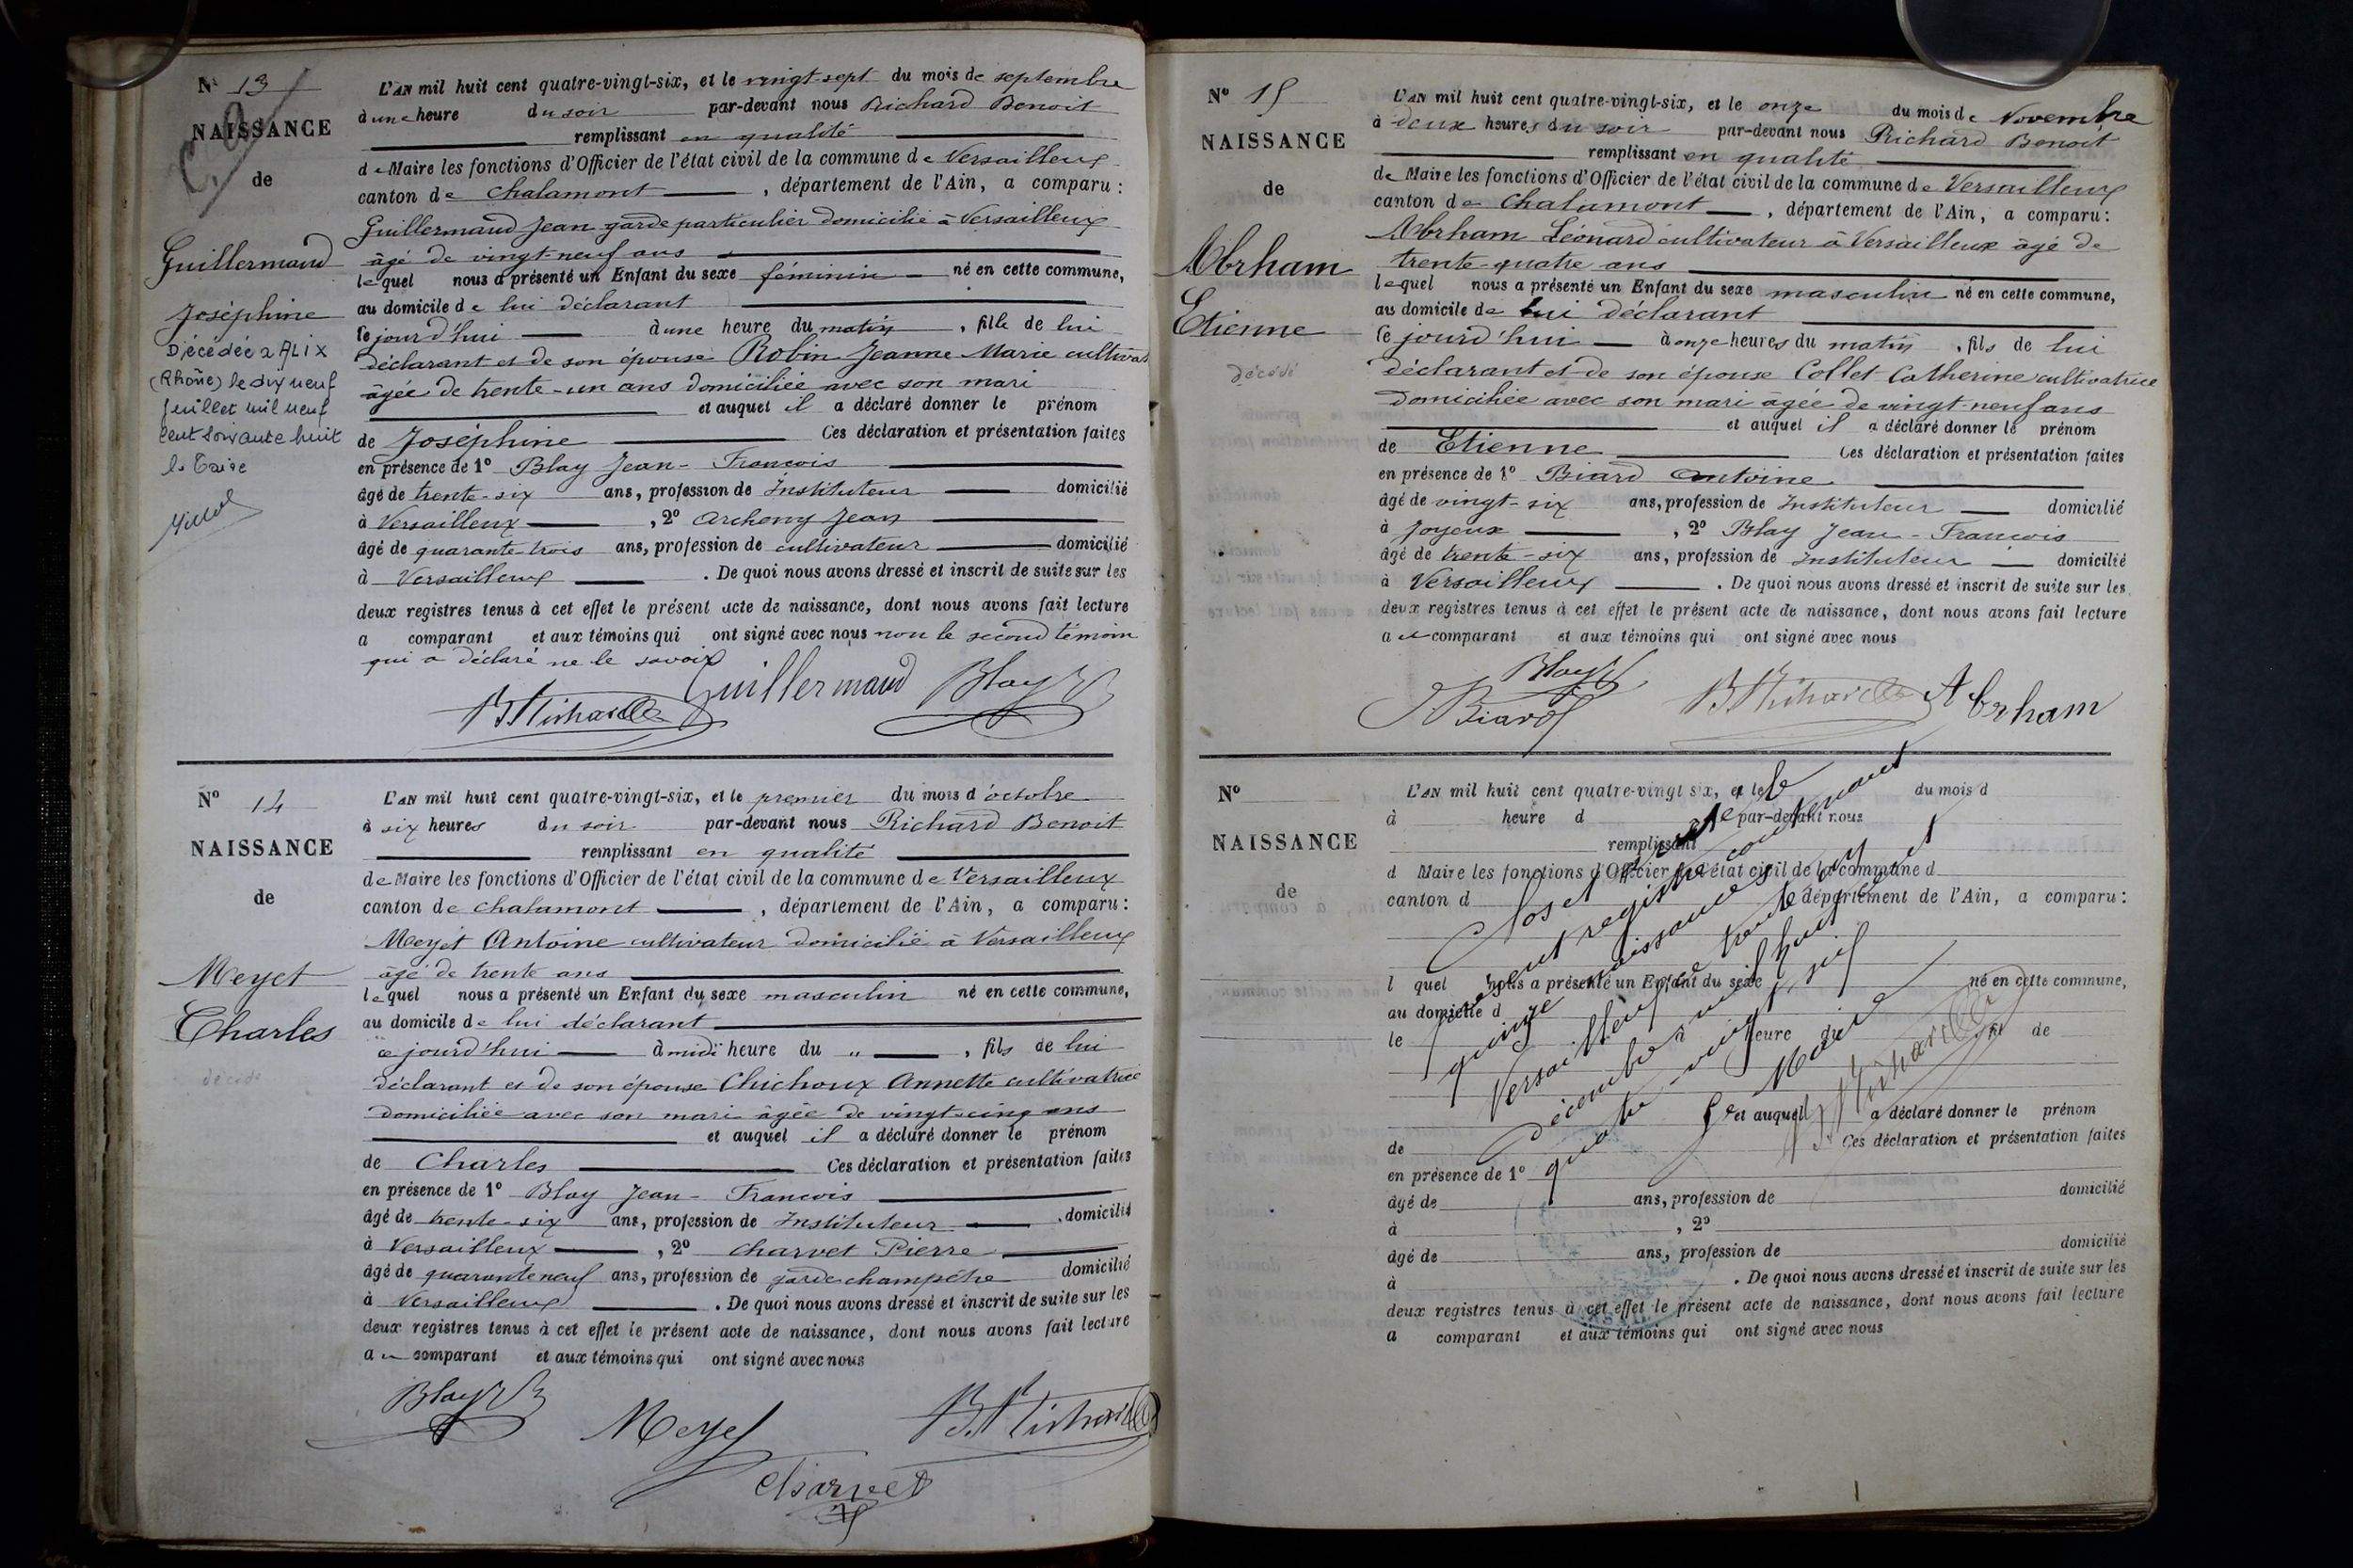 N° 13
NAISSANCE
de
Guillermand
Joséphine
Décédée à ALIX
(Rhône) le dix neuf
juillet mil neuf
cent soixante huit
L'AN mil huit cent quatre-vingt-six, et le vingt-sept du mois de septembre
à une heure du soir par-devant nous Richard Benoit
remplissant en qualité
de Maire les fonctions d'Officier de l'état civil de la commune de Versailleux
canton de Chalamont, département de l'Ain, a comparu :
Guillermand Jean garde particulier domicilié à Versailleux
âgé de vingt-neuf ans
lequel nous a présenté un Enfant du sexe féminin né en cette commune,
au domicile de lui déclarant
ce jourd'hui à une heure du matin, fille de lui
déclarant et de son épouse Robin Jeanne Marie cultivat
âgée de trente-un ans domiciliée avec son mari
et auquel il a déclaré donner le prénom
de Joséphine Ces déclaration et présentation faites
en présence de 1° Blay Jean-François
âgé de trente-six ans, profession de Instituteur domicilié
à Versailleux, 2° Archeny Jean
âgé de quarante trois ans, profession de cultivateur domicilié
à Versailleux. De quoi nous avons dressé et inscrit de suite sur les
deux registres tenus à cet effet le présent acte de naissance, dont nous avons fait lecture
a comparant et aux témoins qui ont signé avec nous non le second témoin
qui a déclaré ne le savoir
B Richard Guillermand Blay
N° 14
NAISSANCE
de
Meyet
Charles
décédé
L'AN mil huit cent quatre-vingt-six, et le premier du mois d'octobre
à six heures du soir par-devant nous Richard Benoit
remplissant en qualité
de Maire les fonctions d'Officier de l'état civil de la commune de Versailleux
canton de Chalamont, département de l'Ain, a comparu :
Meyet Antoine cultivateur domicilié à Versailleux
âgé de trente ans
lequel nous a présenté un Enfant du sexe masculin né en cette commune,
au domicile de lui déclarant
ce jourd'hui à midi heure du „, fils de lui
déclarant et de son épouse Chichoux Annette cultivatrice
domiciliée avec son mari âgée de vingt-cinq ans
et auquel il a déclaré donner le prénom
de Charles Ces déclaration et présentation faites
en présence de 1° Blay Jean-François
âgé de trente-six ans, profession de Instituteur domicilié
à Versailleux, 2° Charvet Pierre
âgé de quarante neuf ans, profession de garde champêtre domicilié
à Versailleux. De quoi nous avons dressé et inscrit de suite sur les
deux registres tenus à cet effet le présent acte de naissance, dont nous avons fait lecture
au comparant et aux témoins qui ont signé avec nous
Blay Meyet B Richard
Charvet
N° 15
NAISSANCE
de
Abrham
Etienne
décédé
L'AN mil huit cent quatre-vingt-six, et le onze du mois de Novembre
à deux heures du soir par-devant nous Richard Benoit
remplissant en qualité
de Maire les fonctions d'Officier de l'état civil de la commune de Versailleux
canton de Chalamont, département de l'Ain, a comparu :
Abrham Léonard cultivateur à Versailleux âgé de
trente-quatre ans
lequel nous a présenté un Enfant du sexe masculin né en cette commune,
au domicile de lui déclarant
ce jourd'hui à onze heures du matin, fils de lui
déclarant et de son épouse Collet Catherine cultivatrice
domiciliée avec son mari âgée de vingt-neuf ans
et auquel il a déclaré donner le prénom
de Etienne Ces déclaration et présentation faites
en présence de 1° Biard Antoine
âgé de vingt-six ans, profession de Instituteur domicilié
à Joyeux, 2° Blay Jean-François
âgé de trente-six ans, profession de Instituteur domicilié
à Versailleux. De quoi nous avons dressé et inscrit de suite sur les
deux registres tenus à cet effet le présent acte de naissance, dont nous avons fait lecture
au comparant et aux témoins qui ont signé avec nous
Blay
Biard B Richard Abrham
N°
NAISSANCE
de
L'AN mil huit cent quatre-vingt six, et le du mois d
à heure d par-devant nous
remplissant
d Maire les fonctions d'Officier de l'état civil de la commune d
canton d département de l'Ain, a comparu :
l quel nous a présenté un Enfant du sexe né en cette commune,
au domicile d
le à heure du fil de
et auquel a déclaré donner le prénom
de Ces déclaration et présentation faites
en présence de 1°
âgé de ans, profession de domicilié
à , 2°
âgé de ans, profession de domicilié
à . De quoi nous avons dressé et inscrit de suite sur les
deux registres tenus à cet effet le présent acte de naissance, dont nous avons fait lecture
a comparant et aux témoins qui ont signé avec nous
Clos et arrêté le
présent registre contenant
quinze naissances
Versailleux le trente un
décembre mil huit cent
quatre-vingt-six
Le Maire
B Richard